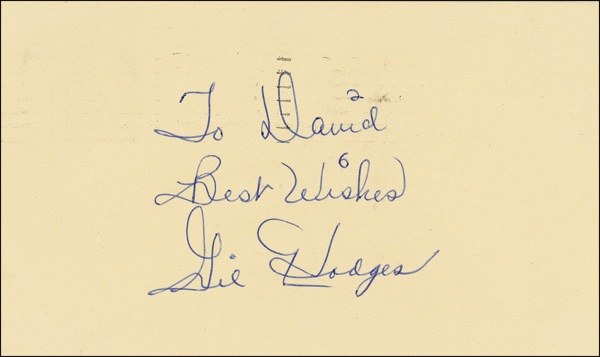 To David
Best Wishes
Gil Hodges